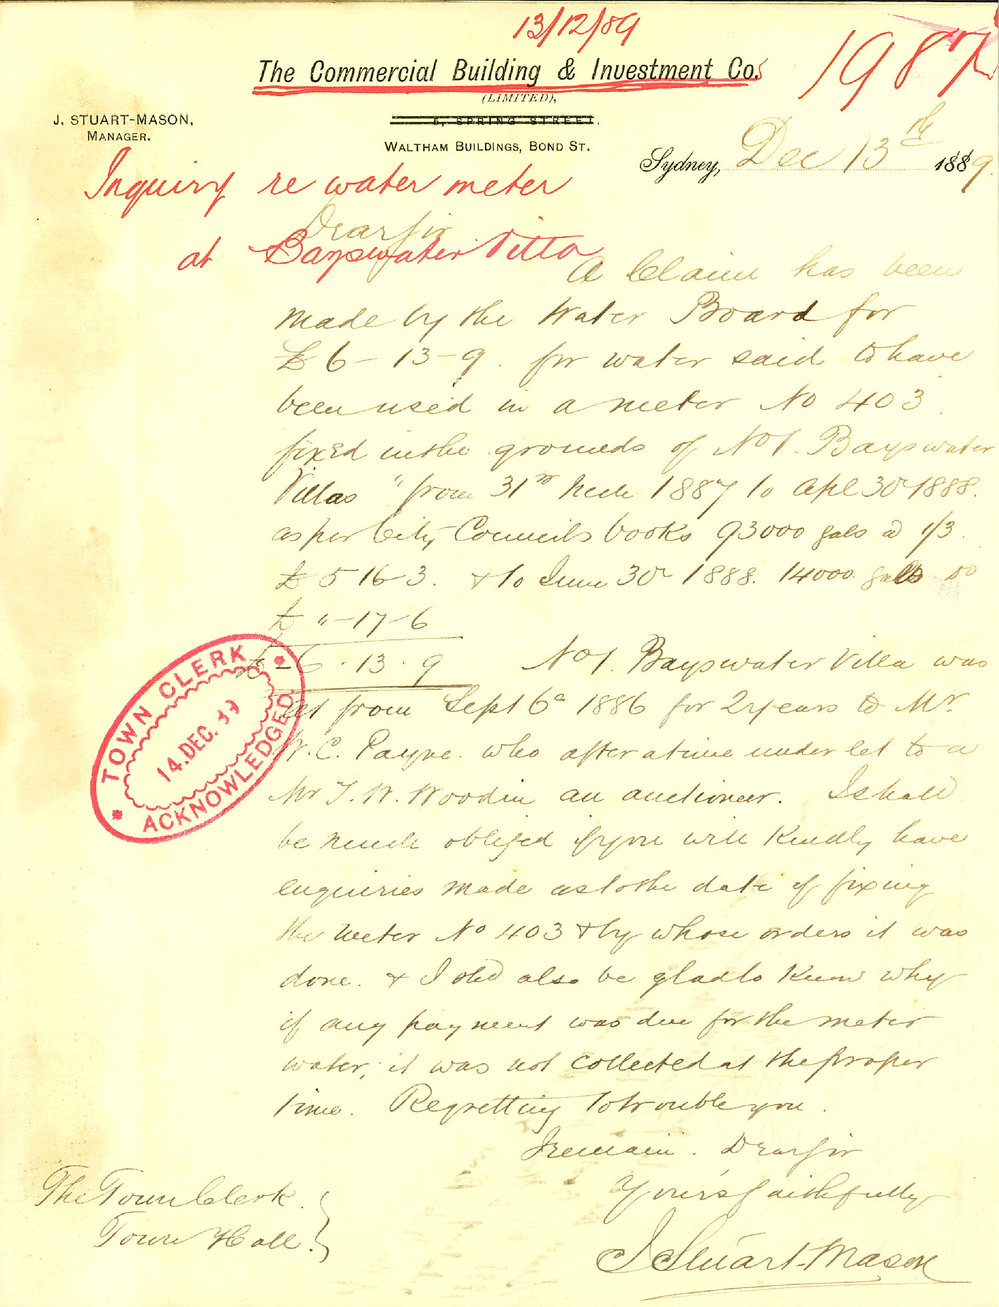 13/12/89
1987
The Commercial Building & Investment Co.
(LIMITED),
5, SPRING STREET.
J. STUART-MASON,
MANAGER.
WALTHAM BUILDINGS, BOND ST.
Sydney, Dec 13th 1889.
Inquiry re water meter
at Bayswater Villa
Dear Sir
A Claim has been
made by the Water Board for
£6-13-9. for water said to have
been used in a meter No 403.
fixed in the grounds of No 1. Bayswater
Villas " from 31st 1887 to Apl 30 1888.
as per City Councils books 93000 gals @ 1/3
£5 16-3. & to June 30 1888. 14000 galls do
£ " -17-6
£-6.13.9 No 1. Bayswater Villa was
let from Sept 6th 1886 for 2 years to Mr
W. C. Payne. who after a time under let to a
Mr T. W. Woodin an auctioneer. I shall
be much obliged if you will Kindly have
enquiries made as to the date of fixing
the Meter No 403 & by whose orders it was
done. & I shd also be glad to Know why
if any payment was due for the meter
water, it was not collected at the proper
time. Regretting to trouble you.
I remain. Dear Sir
Yours faithfully
J Stuart-Mason
The Town Clerk.
Town Hall.
TOWN CLERK
14. DEC. 89
ACKNOWLEDGED